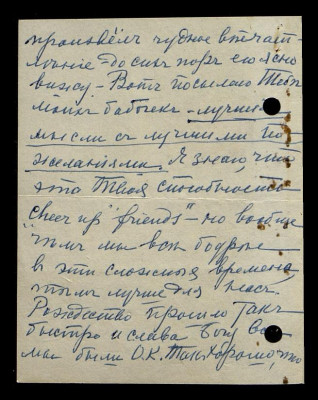 произвёлъ чудное впечат-
лѣніе – до сихъ поръ его ясно
вижу – Вотъ посылаю Тебѣ
моихъ бабочекъ – лучшія
мысли съ лучшими по-
желаніями. Я знаю, что
это Твоя способность
"cheer up" friends" – но вообще
чѣмъ мы всѣ бодрѣе
въ эти сложныя времена,
тѣмъ лучше для насъ.
Рождество прошло такъ
быстро и слава Богу всѣ
мы были О.К. Такъ хорошо, что